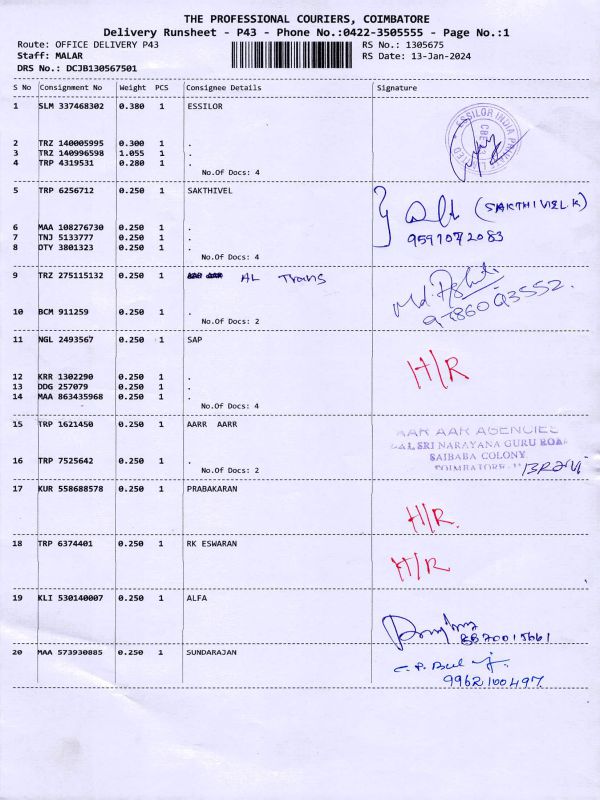 THE PROFESSIONAL COURIERS, COIMBATORE
Delivery Runsheet - P43 - Phone No.:0422-3505555 - Page No.:1
Route: OFFICE DELIVERY P43
RS No.: 1305675
Staff: MALAR
RS Date: 13-Jan-2024
DRS No.: DCJB130567501
S No Consignment No Weight PCS Consignee Details Signature
1 SLM 337468302 0.380 1 ESSILOR
ESSILOR INDIA
2 TRZ 140005995 0.300 1 .
3 TRZ 140996598 1.055 1 .
4 TRP 4319531 0.280 1 .
No.Of Docs: 4
5 TRP 6256712 0.250 1 SAKTHIVEL
(SAKTHIVEL.K)
6 MAA 108276730 0.250 1 .
7 TNJ 5133777 0.250 1 .
8 DTY 3801323 0.250 1 .
No.Of Docs: 4
9 TRZ 275115132 0.250 1 AL Trans
10 BCM 911259 0.250 1 .
No.Of Docs: 2
11 NGL 2493567 0.250 1 SAP
H/R
12 KRR 1302290 0.250 1 .
13 DDG 257079 0.250 1 .
14 MAA 863435968 0.250 1 .
No.Of Docs: 4
15 TRP 1621450 0.250 1 AARR AARR
AAR AAR AGENCIES
SRI NARAYANA GURU ROAD
SAIBABA COLONY
COIMBATORE
16 TRP 7525642 0.250 1 .
No.Of Docs: 2
17 KUR 558688578 0.250 1 PRABAKARAN
H/R.
18 TRP 6374401 0.250 1 RK ESWARAN
H/R
19 KLI 530140007 0.250 1 ALFA
20 MAA 573930885 0.250 1 SUNDARAJAN
9962100497